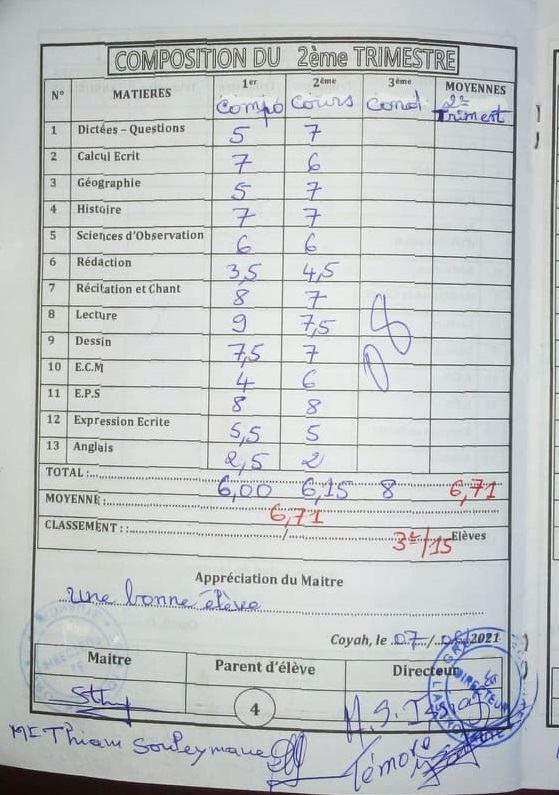 COMPOSITION DU 2ème TRIMESTRE
N° MATIERES 1er 2ème 3ème MOYENNES
Compo Cours Cond 2e Trimest
1 Dictées – Questions 5 7
2 Calcul Ecrit 7 6
3 Géographie 5 7
4 Histoire 7 7
5 Sciences d'Observation 6 6
6 Rédaction 3,5 4,5
7 Récitation et Chant 8 7
8 Lecture 9 7,5 8
9 Dessin 7,5 7
10 E.C.M 4 6
11 E.P.S 8 8
12 Expression Ecrite 5,5 5
13 Anglais 2,5 2
TOTAL : 6,00 6,15 8 6,71
MOYENNE : 6,71
CLASSEMENT : : / 3e/15 Elèves
Appréciation du Maitre
Une bonne élève
Coyah, le 07/ /2021
Maitre Parent d'élève Directeur
4
Mr Thiam Souleymane Témoro